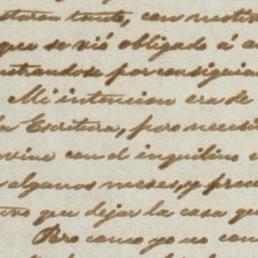 estaron tanto, con motivo
que se vió obligado á a
ntrandose por consiguie
Mi intencion era de
la Escritura, pero necesi
ovine con el inquilino e
s algunos meses, y proc
tuvo que dejar la casa qu
Pero como yo no con